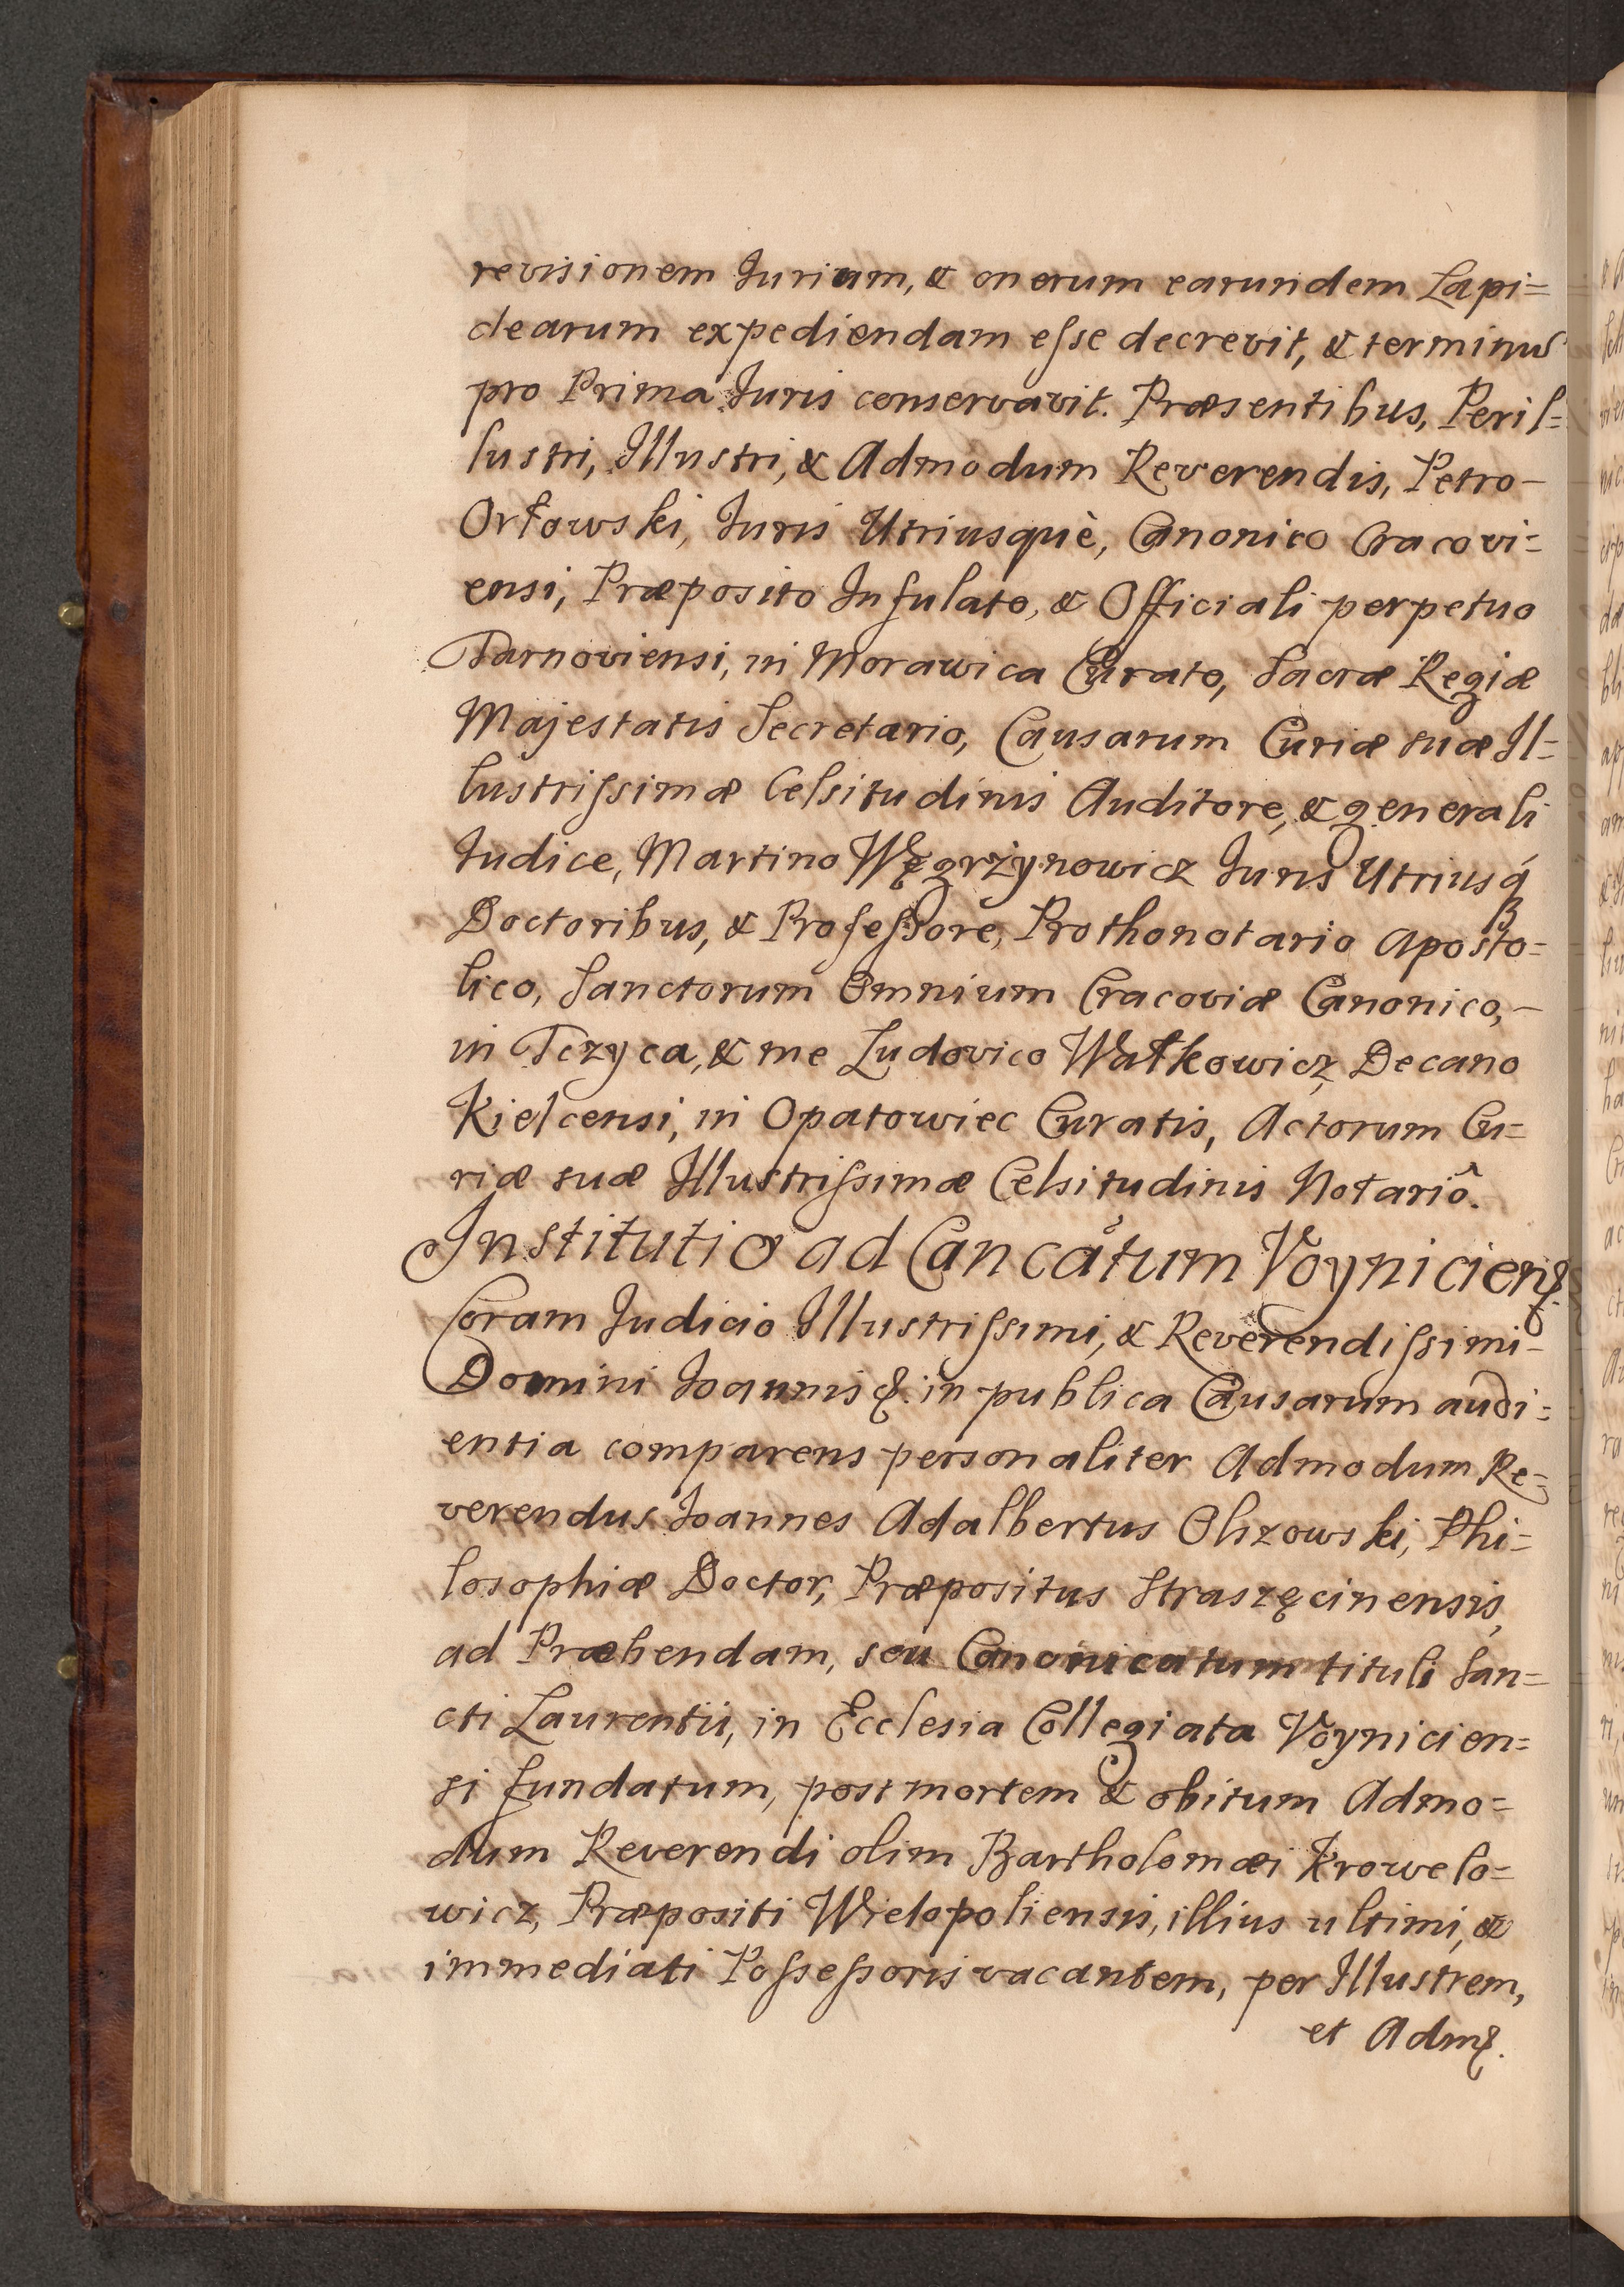 revisionem Jurium, & onerum earundem Lapi=
dearum expediendam eſse decrevit, & terminũ
pro Prima Juris conservavit. Præsentibus, Peril=
lustri, Illustri, & Admodum Reverendis, Petro –
Orłowski, Juris Utriusquè, Canonico Cracovi=
ensi, Præposito Infulato, & Officiali perpetuo
Tarnoviensi, in Morawica Curato, Sacræ Regiæ
Majestatis Secretario, Causarum Curiæ suæ Il=
lustriſsimæ Celsitudinis Auditore, & generali
Judice, Martino Węgrżynowicz Juris Utriusq́
Doctoribus, & Profeſsore, Prothonotario Aposto=
lico, Sanctorum Omnium Cracoviæ Canonico, –
in Tczyca, & me Ludovico Wałkowicz Decano
Kielcensi, in Opatowiec Curatis, Actorum Cu=
riæ suæ Illustriſsimæ Celsitudinis Notariô.
Institutio ad Cancãtum Voyniciens.
Coram Judicio Illustriſsimi, & Reverendiſsimi –
Domini Joannis &. in publica Causarum audi=
entia comparens personaliter Admodum Re=
verendus Joannes Adalbertus Olszowski, Phi=
losophiæ Doctor, Præpositus Straszęcinensis,
ad Præbendam, seu Canonicatum tituli San=
cti Laurentii, in Ecclesia Collegiata Voynicien=
si fundatum, post mortem & obitum Admo=
dum Reverendi olim Bartholomæi Krowelo=
wicz, Præpositi Wielopoliensis, illius ultimi, &
immediati Poſseſsoris vacantem, per Illustrem,
et Adm.